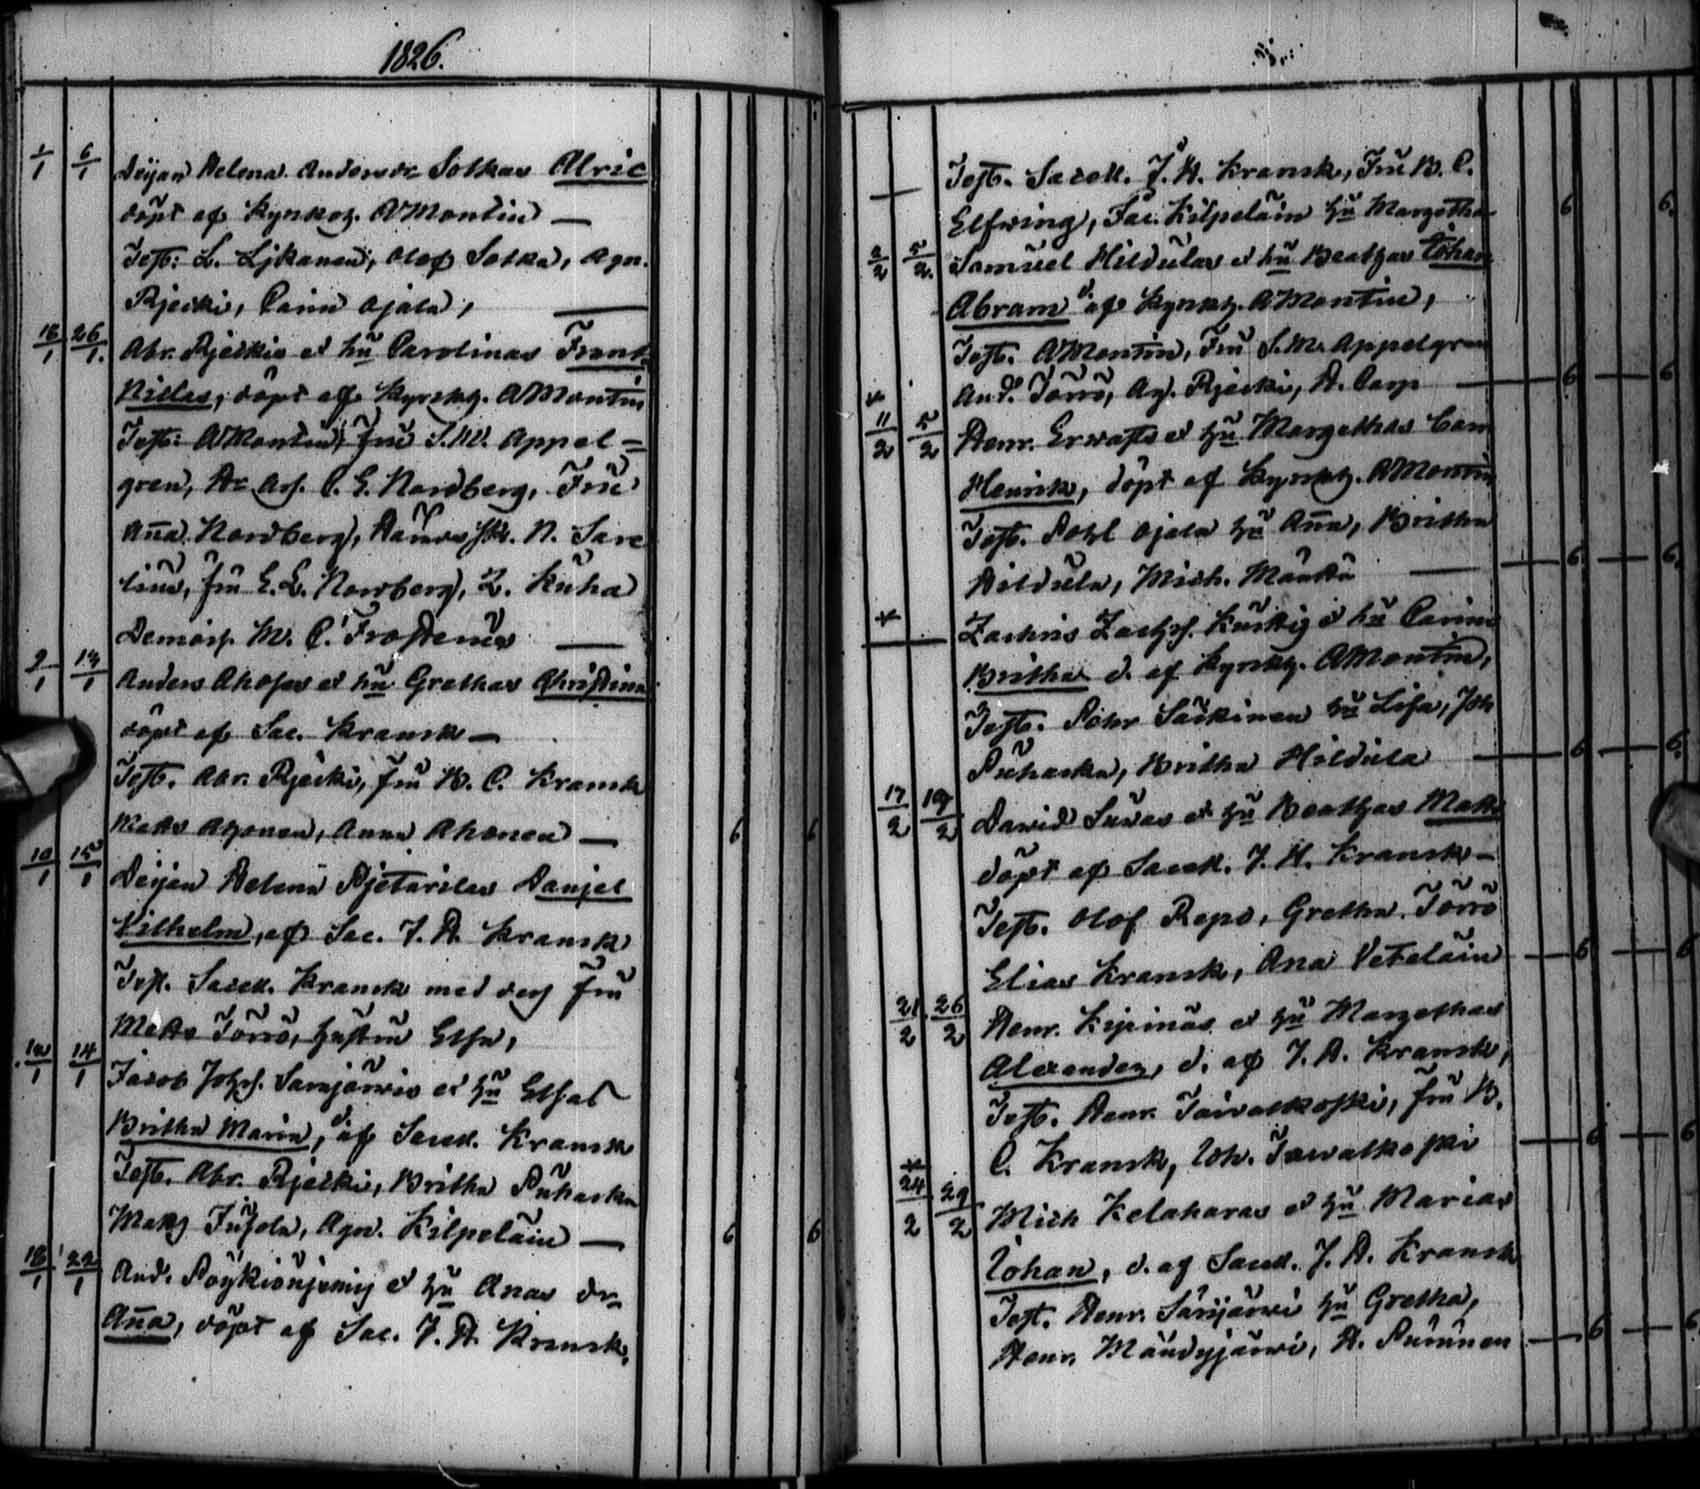 1826.
1/1 6/1 Deijan Helena Andersdr Sotkas Alric
döpt af Kyrkoh. AMontin —
Test: L. Ljkanen, Olof Sotka, Agn.
Rjecki, Carin Ojala, —
18/1 26/1. Abr. Rjeckis et hū Carolinas Frans
Nillas, döpt af Kyrkh. AMontin
Test: AMontin, fru S.M. Appel=
gren, Hr C. E. Nordberg, Fru
Aña Nordberg, N. Sare
lius, fru E.L. Nordberg, Z. Kuha
Demois. M. C. Frosterus —
2/1 14/1 Anders Ahoses et hū Grethas Christina
döpt af Sac. Kransk —
Test. Abr. Rjecki, fru B. C. Kransk
Mats Ahonen, Anna Ahonen — 6 6
10/1 15/1 Deijan Helena Rjetariles Danjel
Vilhelm, af Sac. J. H. Kransk
Test. Sacell. Kransk med dess fru
Mats Törrö, hustru Elsa,
12/1 14/1 Jacob Johss. Sarajärwis et hū Elsas
Britha Maria, d. af Sacell. Kransk
Test. Abr. Rjecki, Britha Puhaska
Mats Jusola, Agn. Kilpeläin — 6 6
18/1 22/1 And. Pöykiönjemij et hū Anas dr
Aña, döpt af Sac. J. H. Kransk,
— Test. Sacell. J. H. Kransk, Fru B. C.
Elfwing, Sac. Kilpeläin hū Margetha 6 6.
2/2 5/2. Samuel Hildulas et hū Beathas Johan
Abram d. af Kyrkh. AMontin,
Test. AMontin, Fru S.M. Appelgren
And. Törrö, Ag. Rjecki, H. Carp — 6 — 6
11/2 5/2 Henr. Erwasts et hū Margethas Carl
Henrik, döpt af Kyrkh. AMontin
Test. Pohl Ojala hū Aña, Britha
Hildula, Mich. Määttä — 6 — 6.
Zachris Zachss. Kurkis et hū Carins
Britha d. af Kyrkh. AMontin,
Test. Pehr Särkinen hū Lisa, Joh
Puhaska, Britha Hildula — 6 — 6.
17/2 19/2 Dawid Suwas et hū Beathas Mats
döpt af Sacell. J. H. Kransk —
Test. Olof Repo, Gretha Törrö
Elias Kransk, Ana Veteläin — 6 — 6
21/2 26/2 Henr. Kipinäs et hū Margethas
Alexander, d. af J. H. Kransk,
Test. Henr. Taiwalkoski, fru B.
C. Kransk, Joh. Taiwalkoski — 6 — 6
24/2 29/2 Mich Kelaharas et hū Marias
Johan, d. af Sacell. J. H. Kransk
Test. Henr. Särijärwi hū Gretha,
Henr. Mändyjärwi, H. Puninen — 6 — 6